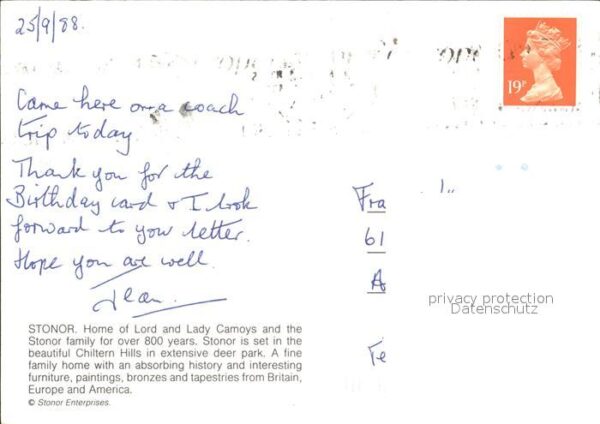 25/9/88.
19P
Came here on a coach
trip today.
Thank you for the
Birthday card & I look
forward to your letter.
Hope you are well.
Jean.
STONOR. Home of Lord and Lady Camoys and the
Stonor family for over 800 years. Stonor is set in the
beautiful Chiltern Hills in extensive deer park. A fine
family home with an absorbing history and interesting
furniture, paintings, bronzes and tapestries from Britain,
Europe and America.
© Stonor Enterprises.
Fra
61
A
Te
privacy protection
Datenschutz